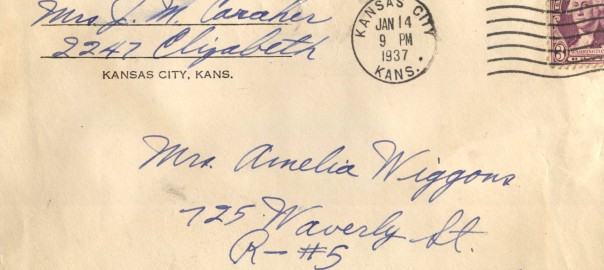 Mrs. J. M. Caraher
2247 Elizabeth
KANSAS CITY, KANS.
KANSAS CITY
JAN 14
9 PM
1937
KANS.
3
WASHINGTON
Mrs. Amelia Wiggons
725 Waverly St.
R-#5